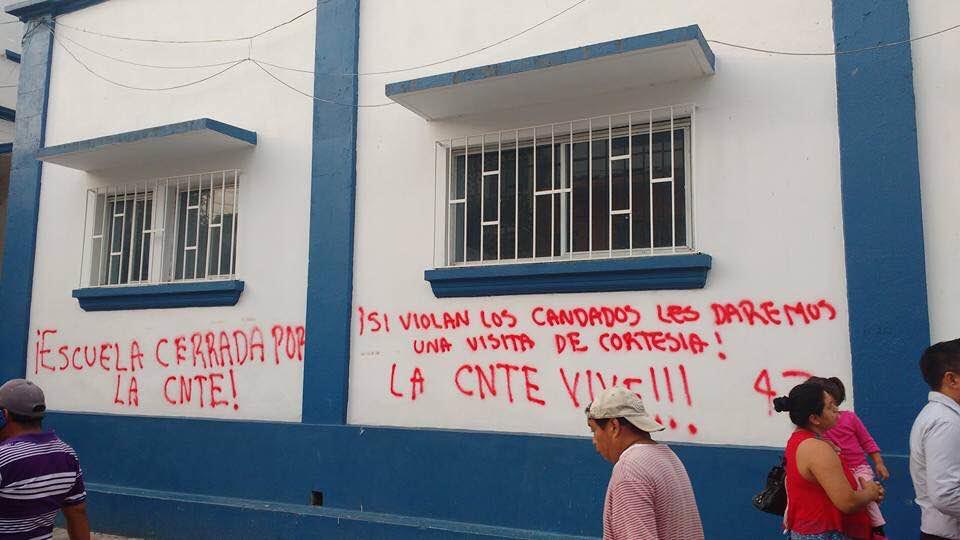 ¡ESCUELA CERRADA POR
LA CNTE!
¡SI VIOLAN LOS CANDADOS LES DAREMOS
UNA VISITA DE CORTESIA!
LA CNTE VIVE!!!